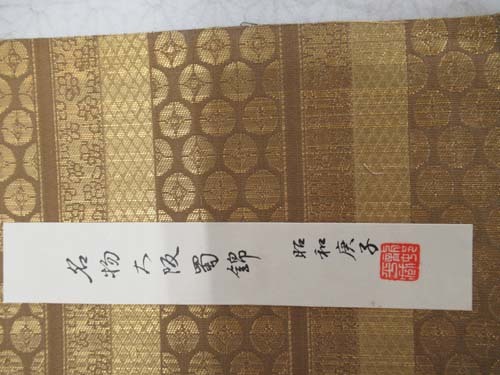 名物大阪蜀錦 昭和庚子